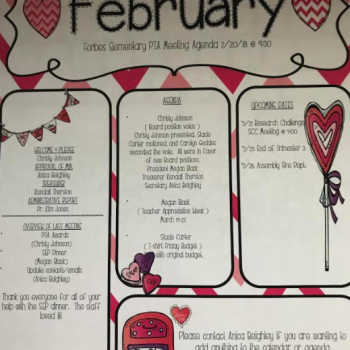 February
Forbes Elementary PTA Meeting Agenda 2/20/18 @ 9:30
WELCOME + PLEDGE
Christy Johnson
APPROVAL OF MIN.
Anica Beighley
TREASURER
Kendall Thurston
ADMINISTRATIVE REPORT
Dr. Kim Jones
OVERVIEW OF LAST MEETING
PTA Awards
(Christy Johnson)
SEP Dinner
(Megan Black)
Update contacts/emails
(Anica Beighley)
Thank you everyone for all of your
help with the SEP dinner. The staff
loved it!
AGENDA
Christy Johnson
(Board position votes)
Christy Johnson presented, Stacie
Carter motioned, and Carolyn Geddes
seconded the vote. All were in favor
of new Board positions.
President Megan Black
Treasurer Kendall Thurston
Secretary Anica Beighley
Megan Black
(Teacher Appreciation Week)
March
Stacie Carter
(T-shirt Friday Budget)
with original budget.
UPCOMING DATES
Research Challenge
SCC Meeting @ 9:00
End of Trimester 2
Assembly Fire Dept.
Please contact Anica Beighley if you are wanting to
add anything to the calendar or agenda.